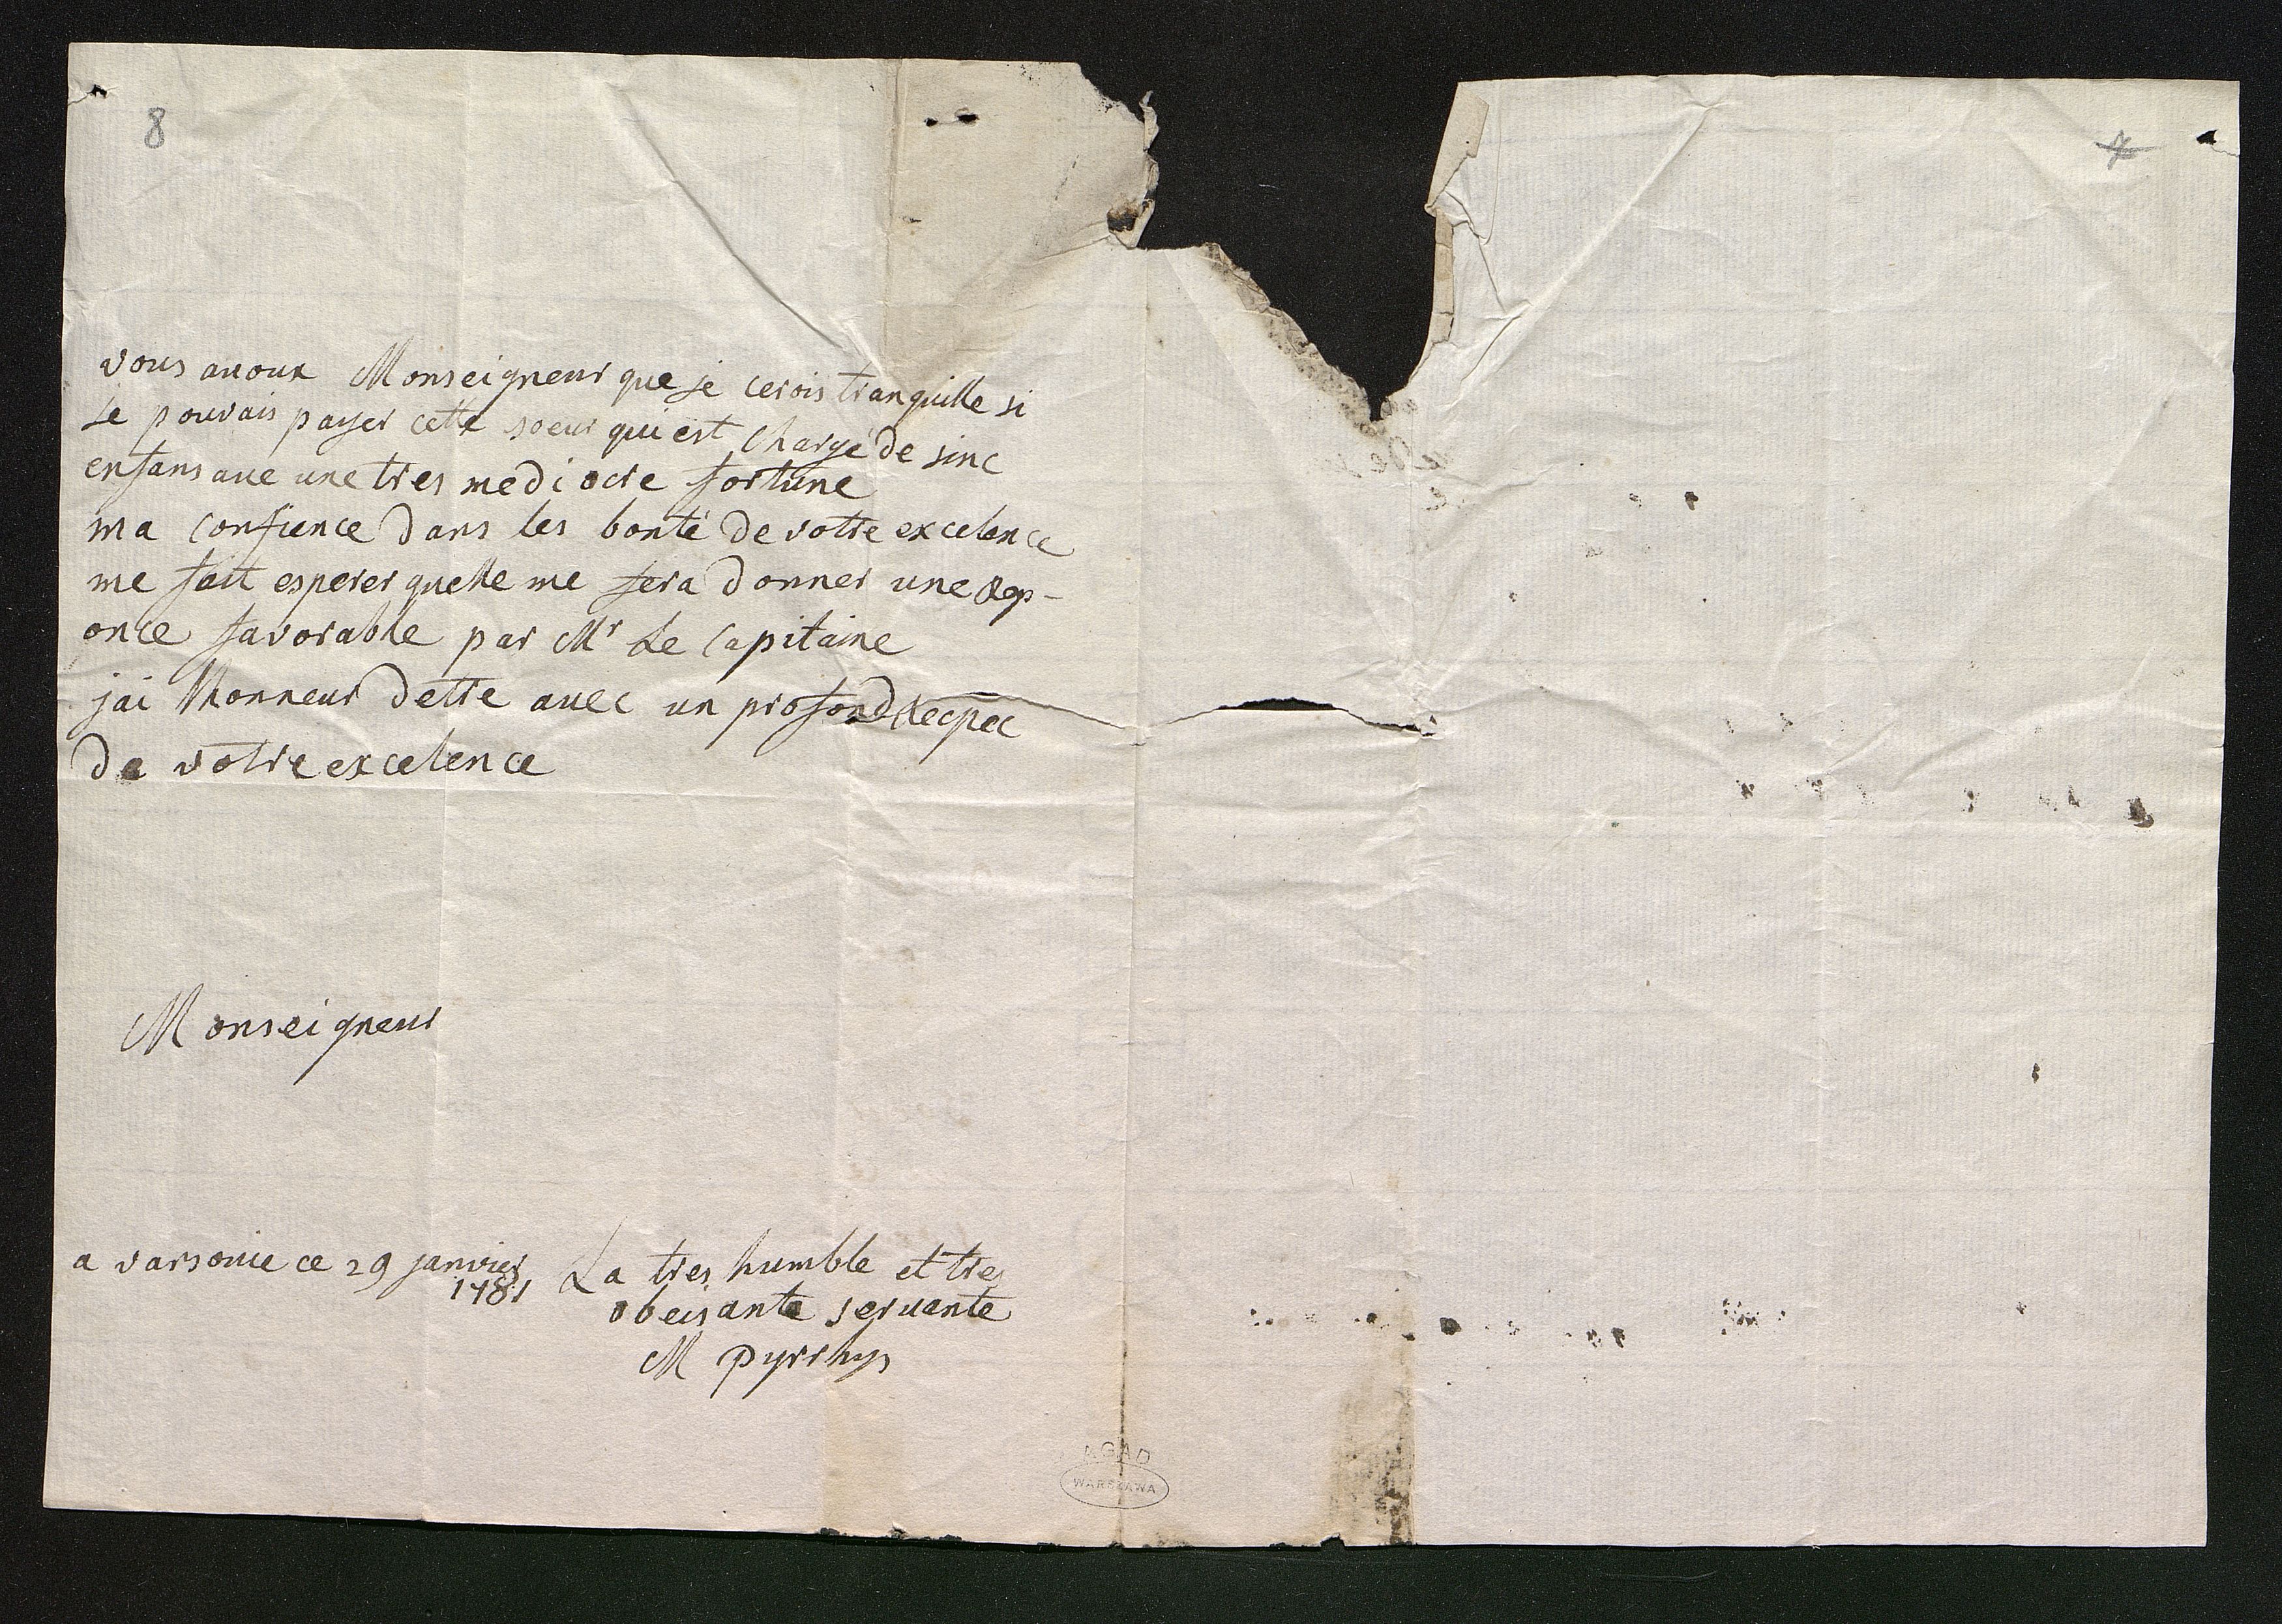 8
7
vous auoux Monseigneur que je cerois tranquille si
je pouvais payer cette soeur qui est chargé de sinc
enfans aue une tres mediocre fortune
ma confience dans les bonté de votre excelence
me fait esperer quelle me fera donner une Rep-
once favorable par Mr Le Capitaine
jai lhonneur dettre auec un profond Recpec
de votre excelence
Monseigneur
a varsovie ce 29 janvier
1781
La tres humble et tres
obeisante seruante
M pyrrhys
AGAD
WARSZAWA